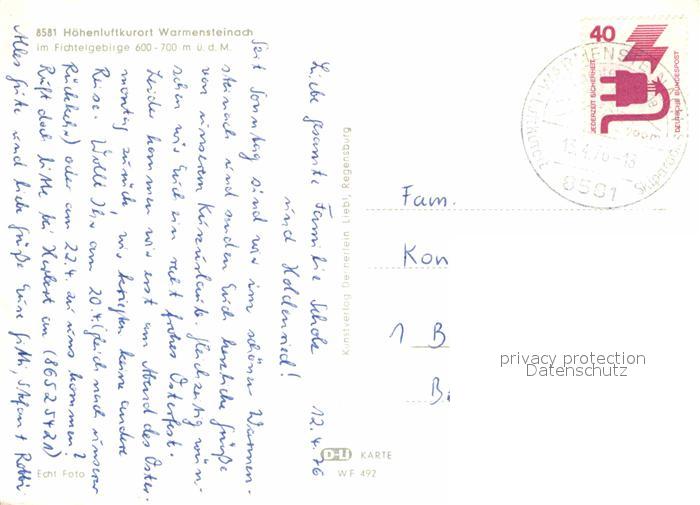 8581 Höhenluftkurort Warmensteinach
im Fichtelgebirge 600-700 m ü. d. M.
Liebe gesamte Familie Scholz
und Holdenried!
12.4.76
Seit Sonntag sind wir im schönen Warmen-
steinach und senden Euch herzliche Grüße
von unserem Kurzurlaub. Gleichzeitig wün-
schen wir Euch ein recht frohes Osterfest.
Leider kommen wir erst am Abend des Oster-
montag zurück, wir kriegten keine andere
Reise. Wollt Ihr am 20.4. (gleich nach unserer
Rückkehr) oder am 22.4. zu uns kommen?
Ruft doch bitte bei Herbert an (86525421)
Alles Gute und liebe Grüße Eure Gitti, Stefan + Robbi
Echt Foto
Kunstverlag Liebl, Regensburg
D-LI KARTE
WF 492
40
JEDERZEIT SICHERHEIT
DEUTSCHE BUNDESPOST
WARMENSTEINACH
8581
Fam.
Kon
1 B
B
privacy protection
Datenschutz